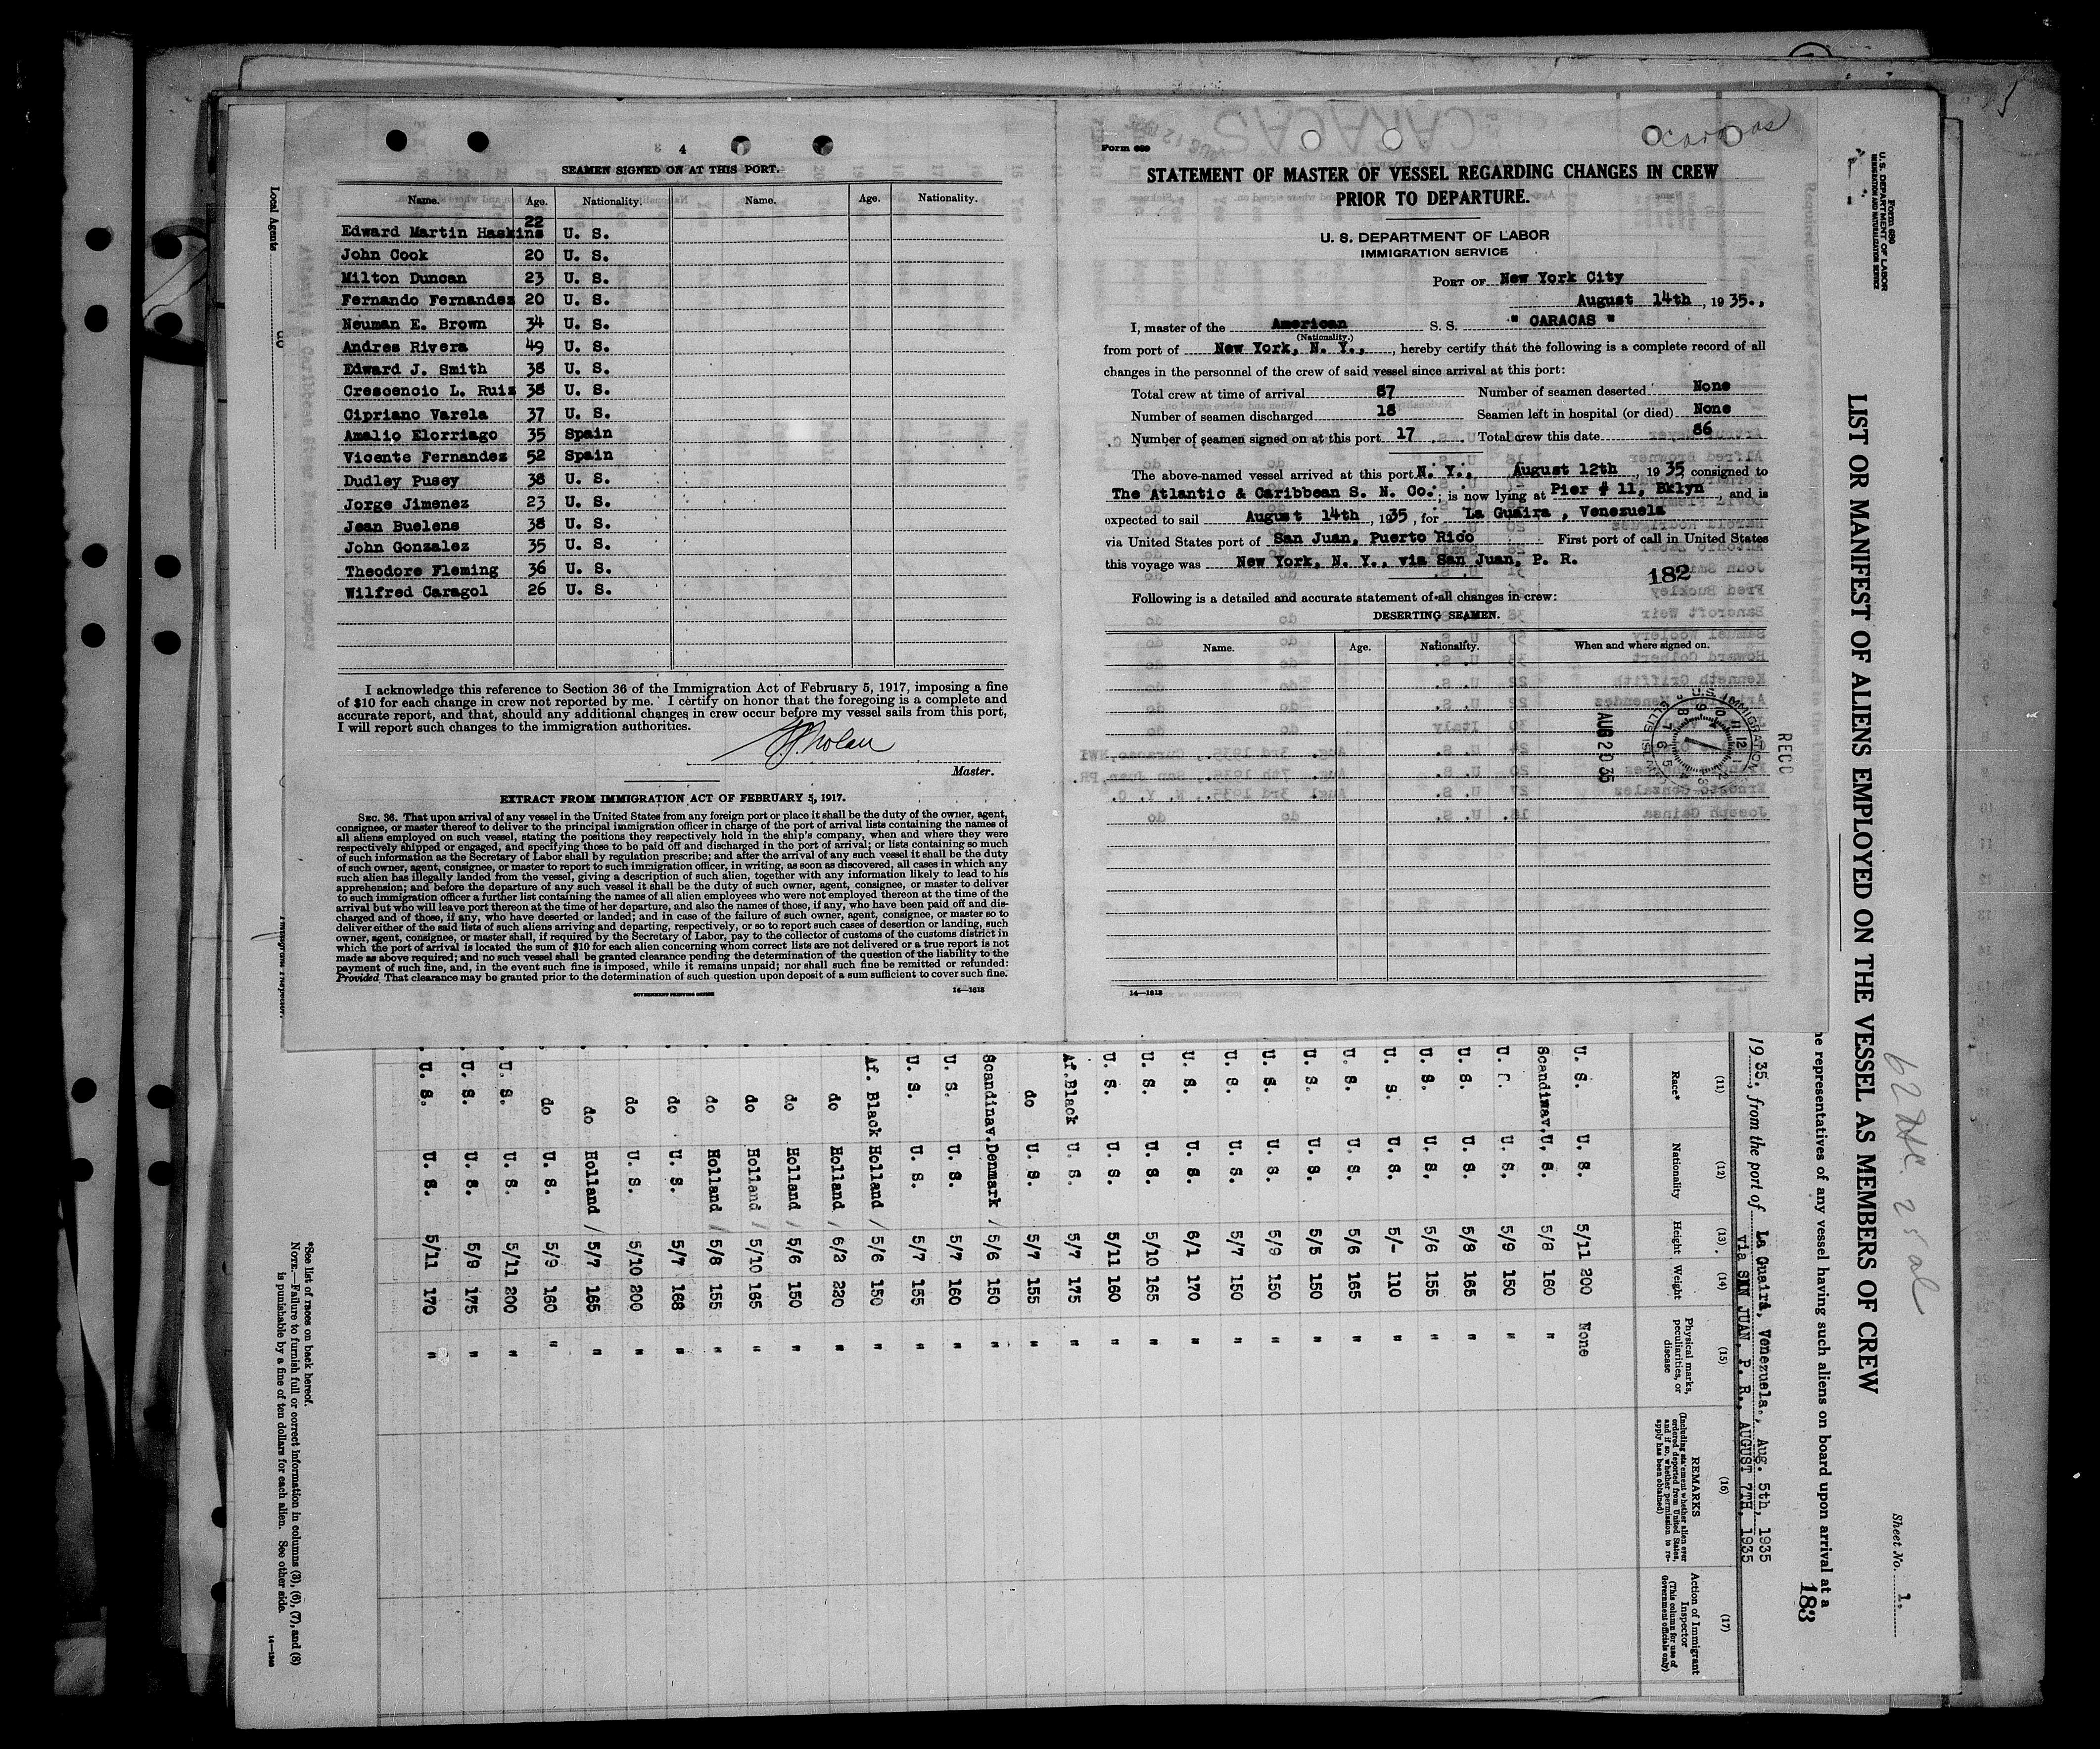 4
SEAMEN SIGNED ON AT THIS PORT.
Name. Age. Nationality. Name. Age. Nationality.
Edward Martin Haskins 22 U. S.
John Cook 20 U. S.
Milton Duncan 23 U. S.
Fernando Fernandez 20 U. S.
Neuman E. Brown 34 U. S.
Andres Rivera 49 U. S.
Edward J. Smith 38 U. S.
Crescencio L. Ruiz 38 U. S.
Cipriano Varela 37 U. S.
Amalio Elorriago 35 Spain
Vicente Fernandez 52 Spain
Dudley Pusey 38 U. S.
Jorge Jimenez 23 U. S.
Jean Buelens 38 U. S.
John Gonzalez 35 U. S.
Theodore Fleming 36 U. S.
Wilfred Caragol 26 U. S.
I acknowledge this reference to Section 36 of the Immigration Act of February 5, 1917, imposing a fine
of $10 for each change in crew not reported by me. I certify on honor that the foregoing is a complete and
accurate report, and that, should any additional changes in crew occur before my vessel sails from this port,
I will report such changes to the immigration authorities.
Master.
EXTRACT FROM IMMIGRATION ACT OF FEBRUARY 5, 1917.
SEC. 36. That upon arrival of any vessel in the United States from any foreign port or place it shall be the duty of the owner, agent,
consignee, or master thereof to deliver to the principal immigration officer in charge of the port of arrival lists containing the names of
all aliens employed on such vessel, stating the positions they respectively hold in the ship's company, when and where they were
respectively shipped or engaged, and specifying those to be paid off and discharged in the port of arrival; or lists containing so much
of such information as the Secretary of Labor shall by regulation prescribe; and after the arrival of any such vessel it shall be the duty
of such owner, agent, consignee, or master to report to such immigration officer, in writing, as soon as discovered, all cases in which any
such alien has illegally landed from the vessel, giving a description of such alien, together with any information likely to lead to his
apprehension; and before the departure of any such vessel it shall be the duty of such owner, agent, consignee, or master to deliver
to such immigration officer a further list containing the names of all alien employees who were not employed thereon at the time of the
arrival but who will leave port thereon at the time of her departure, and also the names of those, if any, who have been paid off and dis-
charged and of those, if any, who have deserted or landed; and in case of the failure of such owner, agent, consignee, or master so to
deliver either of the said lists of such aliens arriving and departing, respectively, or so to report such cases of desertion or landing, such
owner, agent, consignee, or master shall, if required by the Secretary of Labor, pay to the collector of customs of the customs district in
which the port of arrival is located the sum of $10 for each alien concerning whom correct lists are not delivered or a true report is not
made as above required; and no such vessel shall be granted clearance pending the determination of the question of the liability to the
payment of such fine, and, in the event such fine is imposed, while it remains unpaid; nor shall such fine be remitted or refunded:
Provided, That clearance may be granted prior to the determination of such question upon deposit of a sum sufficient to cover such fine.
GOVERNMENT PRINTING OFFICE 14—1613
Caracas
Form 689
STATEMENT OF MASTER OF VESSEL REGARDING CHANGES IN CREW
PRIOR TO DEPARTURE.
U. S. DEPARTMENT OF LABOR
IMMIGRATION SERVICE
PORT OF New York City
August 14th, 1935.,
I, master of the American S. S. " CARACAS "
(Nationality.)
from port of New York, N. Y., , hereby certify that the following is a complete record of all
changes in the personnel of the crew of said vessel since arrival at this port:
Total crew at time of arrival 87 Number of seamen deserted None
Number of seamen discharged 18 Seamen left in hospital (or died) None
Number of seamen signed on at this port 17 Total crew this date 86
The above-named vessel arrived at this port N. Y., August 12th, 1935 consigned to
The Atlantic & Caribbean S. N. Co.; is now lying at Pier # 11, Bklyn, and is
expected to sail August 14th, 1935, for La Guaira, Venezuela
via United States port of San Juan, Puerto Rico First port of call in United States
this voyage was New York, N. Y., via San Juan, P. R.
182
Following is a detailed and accurate statement of all changes in crew:
DESERTING SEAMEN.
Name. Age. Nationality. When and where signed on.
RECD
U.S. IMMIGRATION
ELLIS ISL
AUG 20 35
14—1613
Local Agents do
Form 680
U. S. DEPARTMENT OF LABOR
IMMIGRATION AND NATURALIZATION SERVICE
LIST OR MANIFEST OF ALIENS EMPLOYED ON THE VESSEL AS MEMBERS OF CREW
Sheet No. 1.
he representatives of any vessel having such aliens on board upon arrival at a
183
1935., from the port of La Guaira, Venezuela., Aug. 5th, 1935
via SAN JUAN, P. R., AUGUST 7TH, 1935
(11) (12) (13) (14) (15) (16) (17)
Race* Nationality Height Weight Physical marks, peculiarities, or disease REMARKS (Including statement whether alien ever ordered deported from United States, and if so, whether permission to re-apply has been obtained) Action of Immigrant Inspector (This column for use of Government officials only)
U. S. U. S. 5/11 200 None
Scandinav. U. S. 5/8 160 "
U. S. U. S. 5/9 150 "
U. S. U. S. 5/8 165 "
U. S. U. S. 5/6 155 "
U. S. U. S. 5/- 110 "
U. S. U. S. 5/6 165 "
U. S. U. S. 5/5 150 "
U. S. U. S. 5/9 150 "
U. S. U. S. 5/7 150 "
U. S. U. S. 6/1 170 "
U. S. U. S. 5/10 165 "
U. S. U. S. 5/11 160 "
Af. Black U. S. 5/7 175 "
do U. S. 5/7 155 "
Scandinav. Denmark / 5/6 150 "
U. S. U. S. 5/7 160 "
U. S. U. S. 5/7 155 "
Af. Black Holland / 5/6 150 "
do Holland / 6/2 220 "
do Holland / 5/6 150 "
do Holland / 5/10 165 "
do Holland / 5/8 155 "
do U. S. 5/7 168 "
do U. S. 5/10 200 "
do Holland / 5/7 165 "
do U. S. 5/9 160 "
U. S. U. S. 5/11 200 "
U. S. U. S. 5/9 175 "
U. S. U. S. 5/11 170 "
*See list of races on back hereof.
NOTE.—Failure to furnish full or correct information in columns (3), (6), (7), and (8)
is punishable by a fine of ten dollars for each alien. See other side.
14—1240